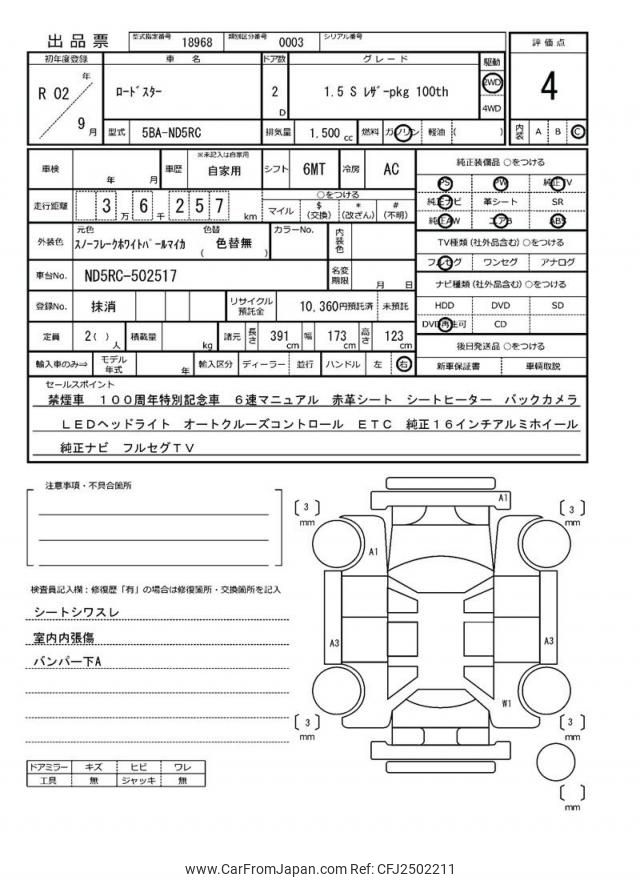 出品票 型式指定番号 18968 類別区分番号 0003 シリアル番号
初年度登録 車 名 ドア数 グレード 駆動 評価点
R 02 年 9 月 ﾛｰﾄﾞｽﾀｰ 2 D 1.5 S ﾚｻﾞｰpkg 100th 2WD 4WD 4
型式 5BA-ND5RC 排気量 1.500 cc 燃料 ガソリン 軽油 ( ) 内装 A B C
車検 年 月 車歴 ※未記入は自家用 自家用 シフト 6MT 冷房 AC 純正装備品 ○をつける
PS PW 純正TV
走行距離 3 万 6 千 2 5 7 km ○をつける 純正ナビ 革シート SR
マイル $ (交換) * (改ざん) # (不明) 純正AW エアB ABS
外装色 元色 ｽﾉｰﾌﾚｰｸﾎﾜｲﾄﾊﾟｰﾙﾏｲｶ 色替 ( 色替無 ) カラーNo. 内装色 TV種類 (社外品含む) ○をつける
フルセグ ワンセグ アナログ
車台No. ND5RC-502517 名変期限 月 日 ナビ種類 (社外品含む) ○をつける
登録No. 抹消 リサイクル預託金 10,360円預託済 未預託 HDD DVD SD
DVD再生可 CD
定員 2( ) 人 積載量 kg 諸元 長さ 391 cm 幅 173 cm 高さ 123 cm 後日発送品 ○をつける
輸入車のみ⇒ モデル年式 年 輸入区分 ディーラー 並行 ハンドル 左 右 新車保証書 車輌取説
セールスポイント
禁煙車 100周年特別記念車 6速マニュアル 赤革シート シートヒーター バックカメラ
LEDヘッドライト オートクルーズコントロール ETC 純正16インチアルミホイール
純正ナビ フルセグTV
注意事項・不具合箇所
検査員記入欄：修復歴「有」の場合は修復箇所・交換箇所を記入
シートシワスレ
室内内張傷
バンパー下A
ドアミラー キズ ヒビ ワレ
工具 無 ジャッキ 無
[ 3 ] mm A1 [ 3 ] mm
A1
A3 A3
W1
[ 3 ] mm [ 3 ] mm
[ ] mm
www.CarFromJapan.com Ref: CFJ2502211